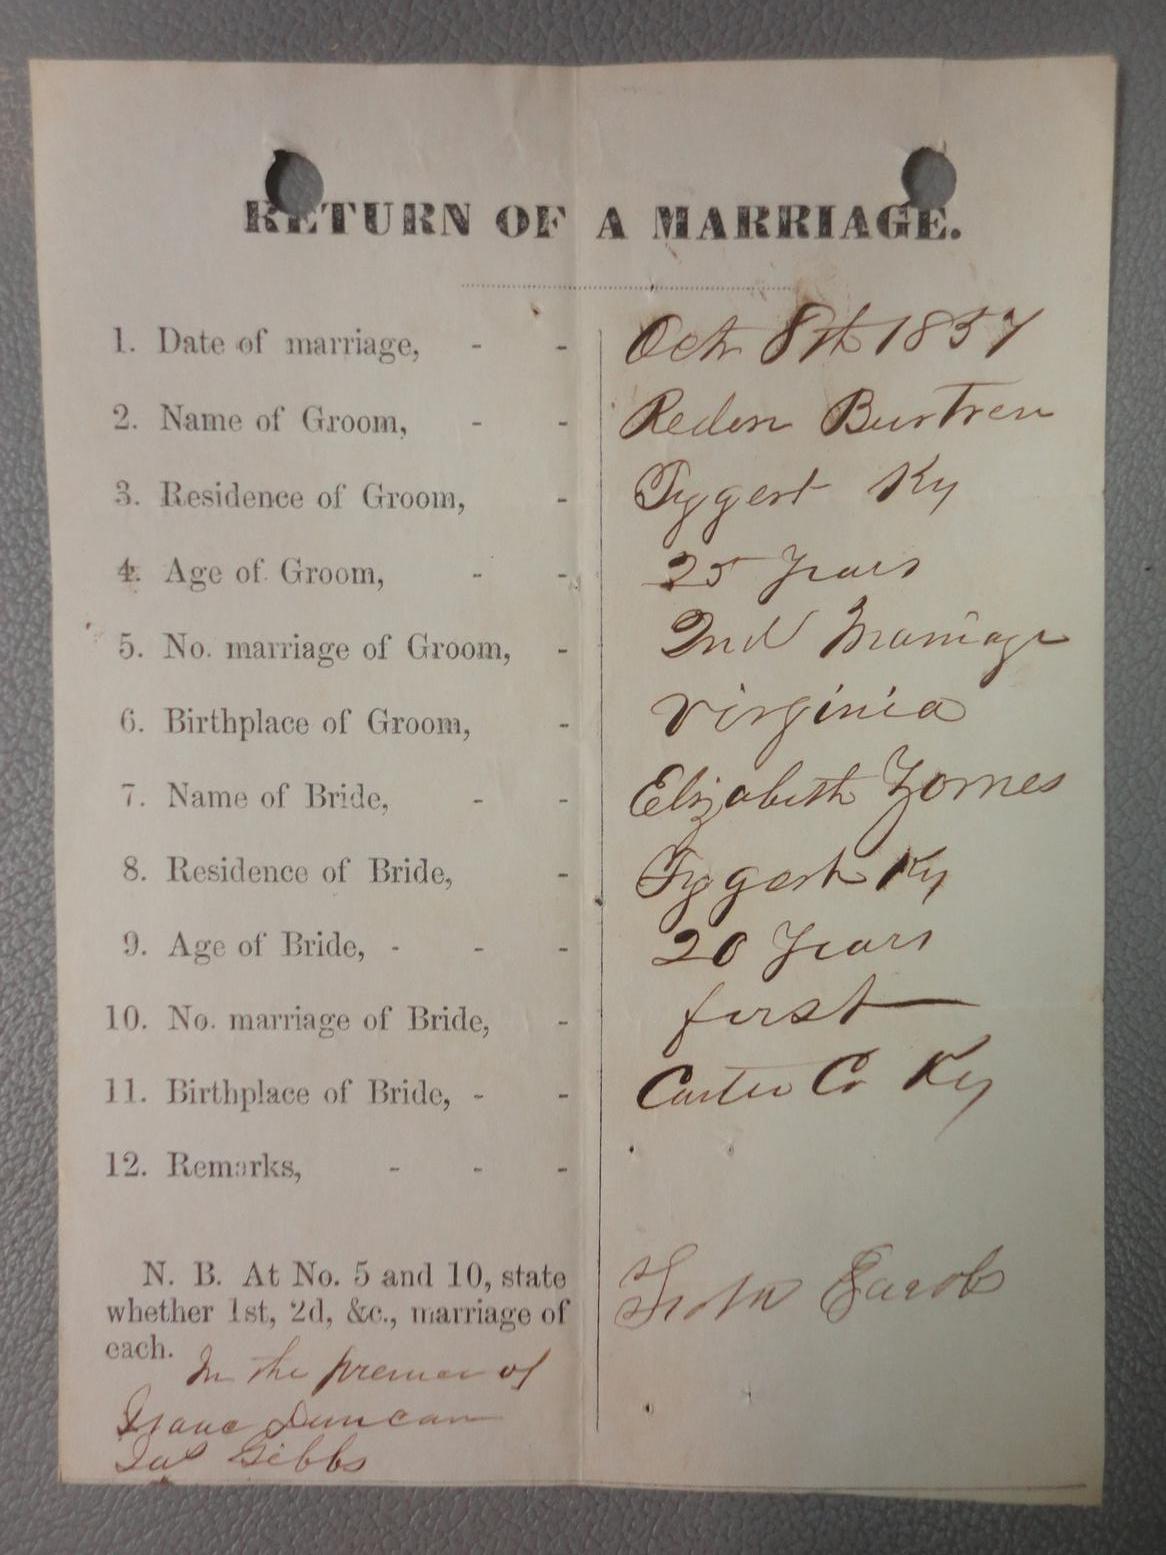 RETURN OF A MARRIAGE.
1. Date of marriage, - - Oct 8th 1857
2. Name of Groom, - - Reden Burtren
3. Residence of Groom, - Tygert Ky
4. Age of Groom, - - 25 Years
5. No. marriage of Groom, - 2nd Marriage
6. Birthplace of Groom, - Virginia
7. Name of Bride, - - Elizabeth Zornes
8. Residence of Bride, - Tygert Ky
9. Age of Bride, - - - 20 Years
10. No. marriage of Bride, - first
11. Birthplace of Bride, - - Carter Co Ky
12. Remarks, - - -
N. B. At No. 5 and 10, state
whether 1st, 2d, &c., marriage of
each.
Jacobs
In the presence of
Isaac Duncan
Jas Gibbs